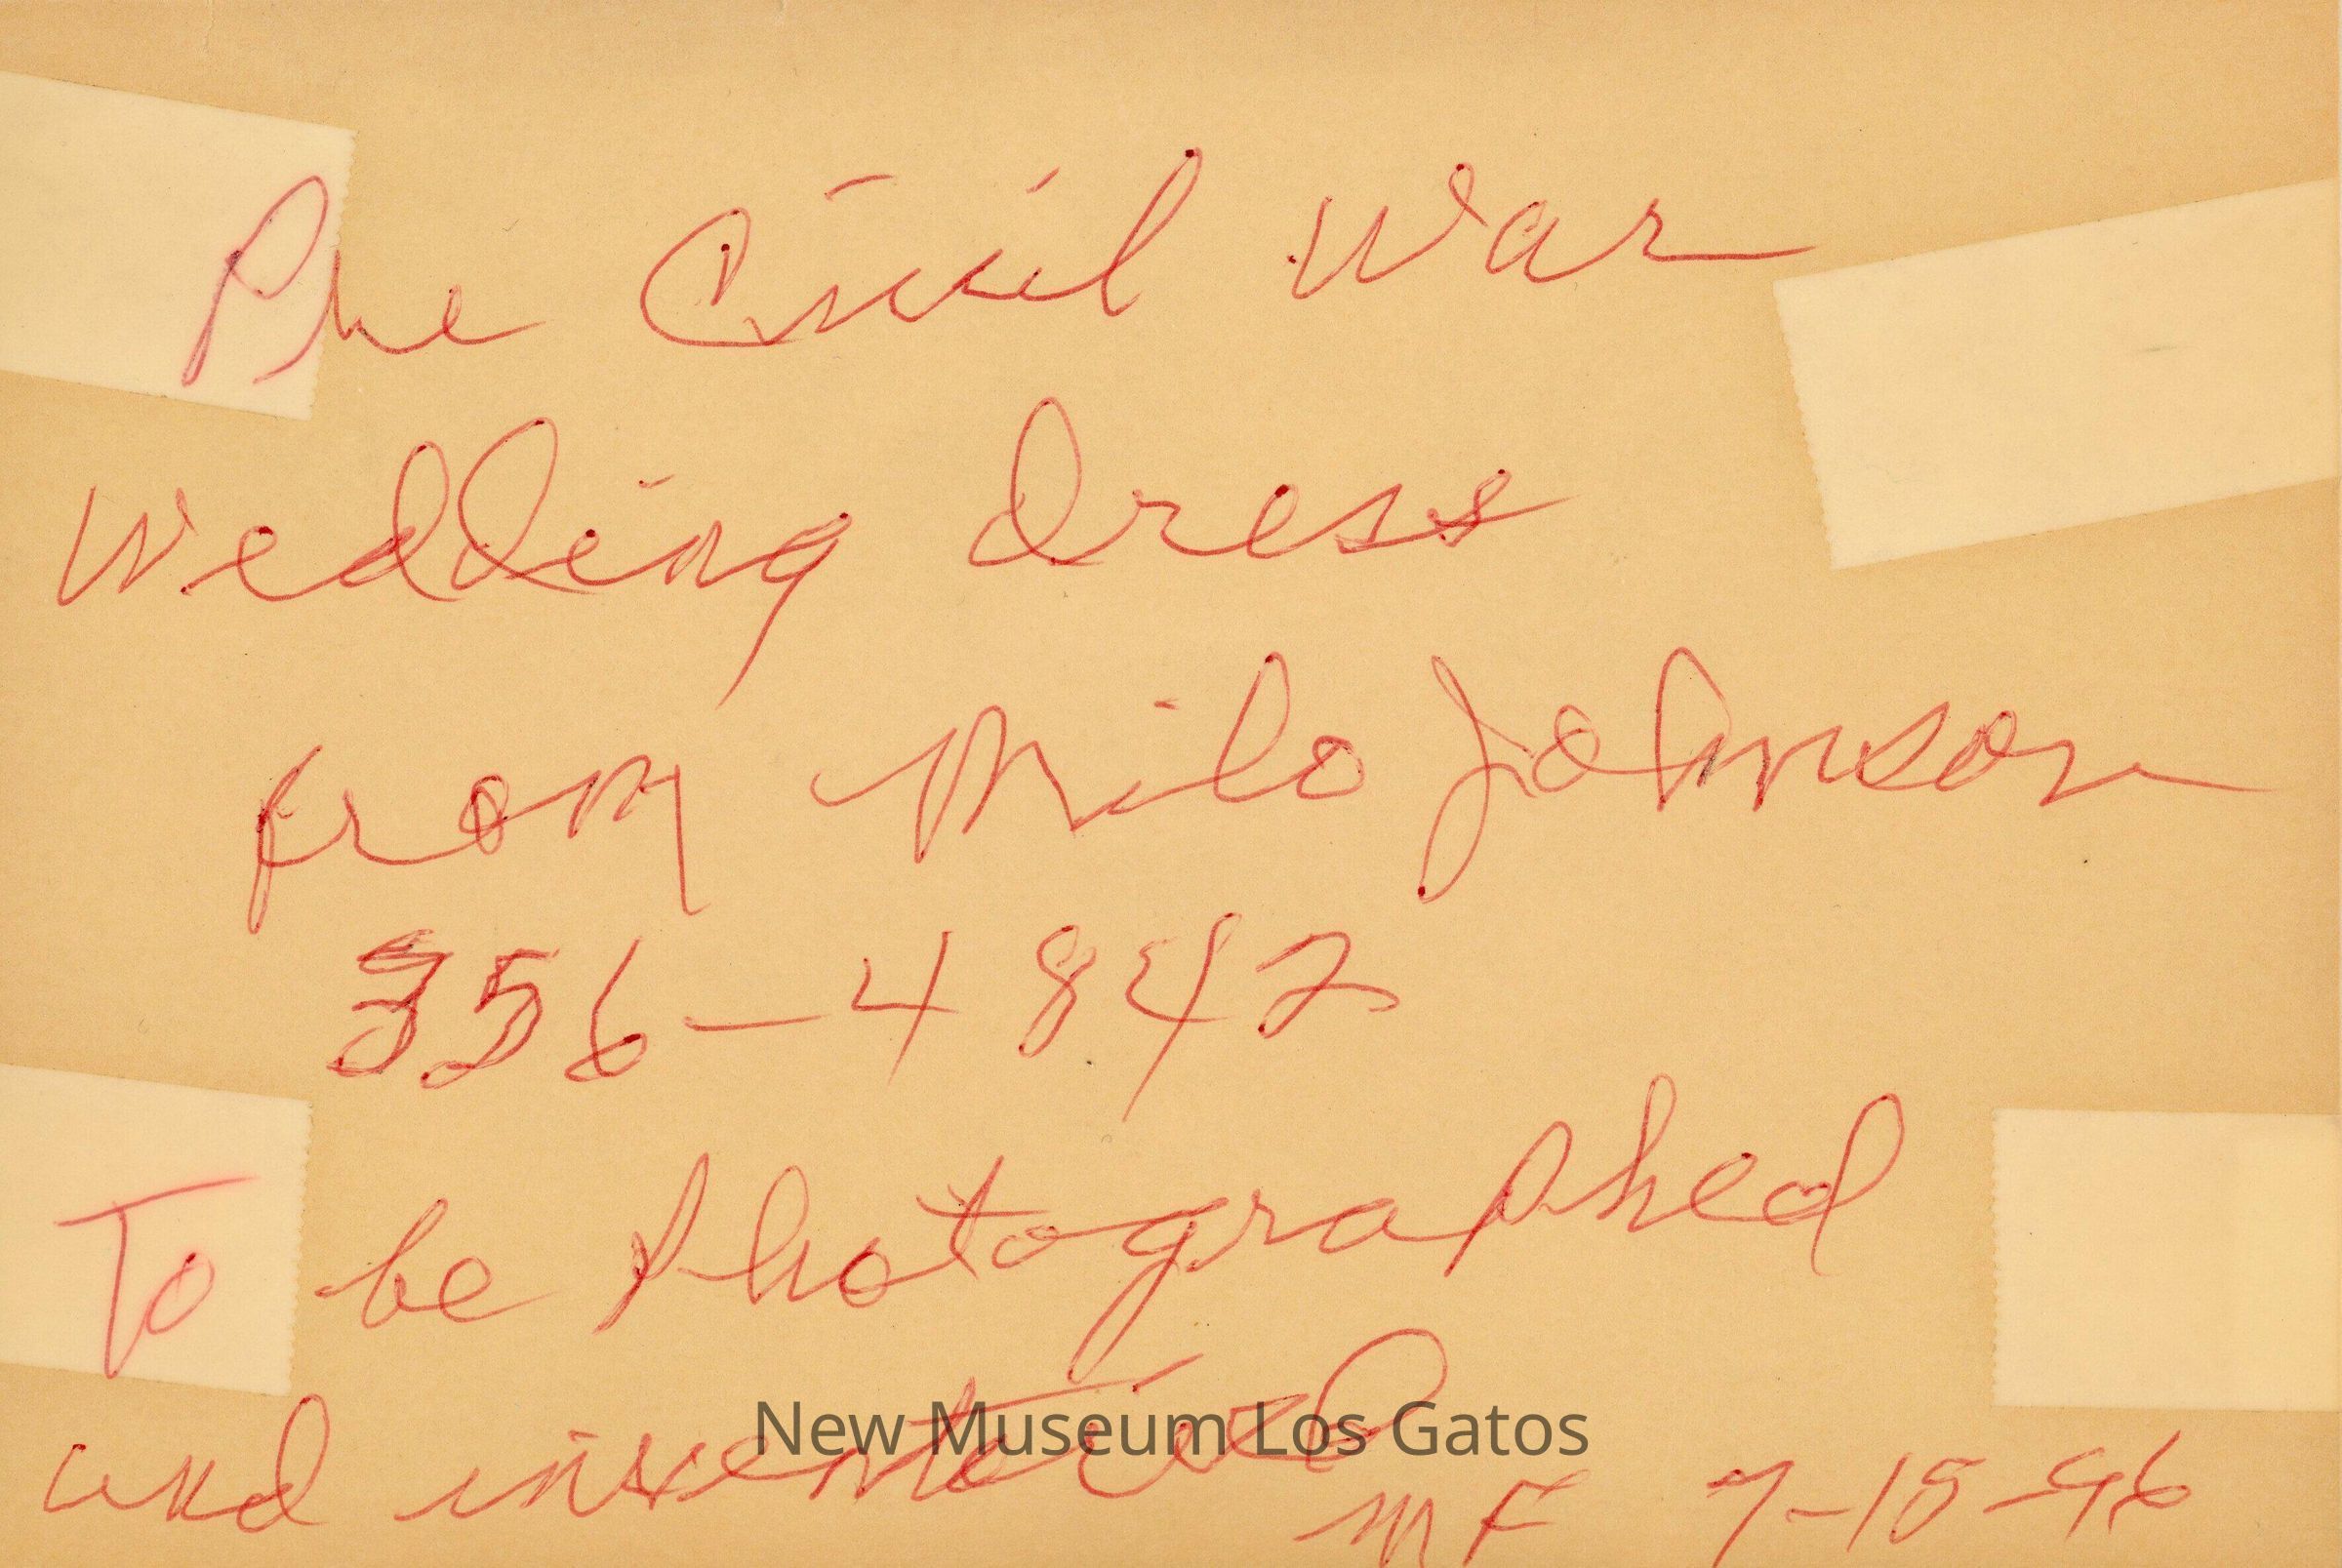 Pre Civil War
Wedding Dress
from Milo Johnson
356-4842
To be photographed
and inventoried
New Museum Los Gatos
MF 7-15-96